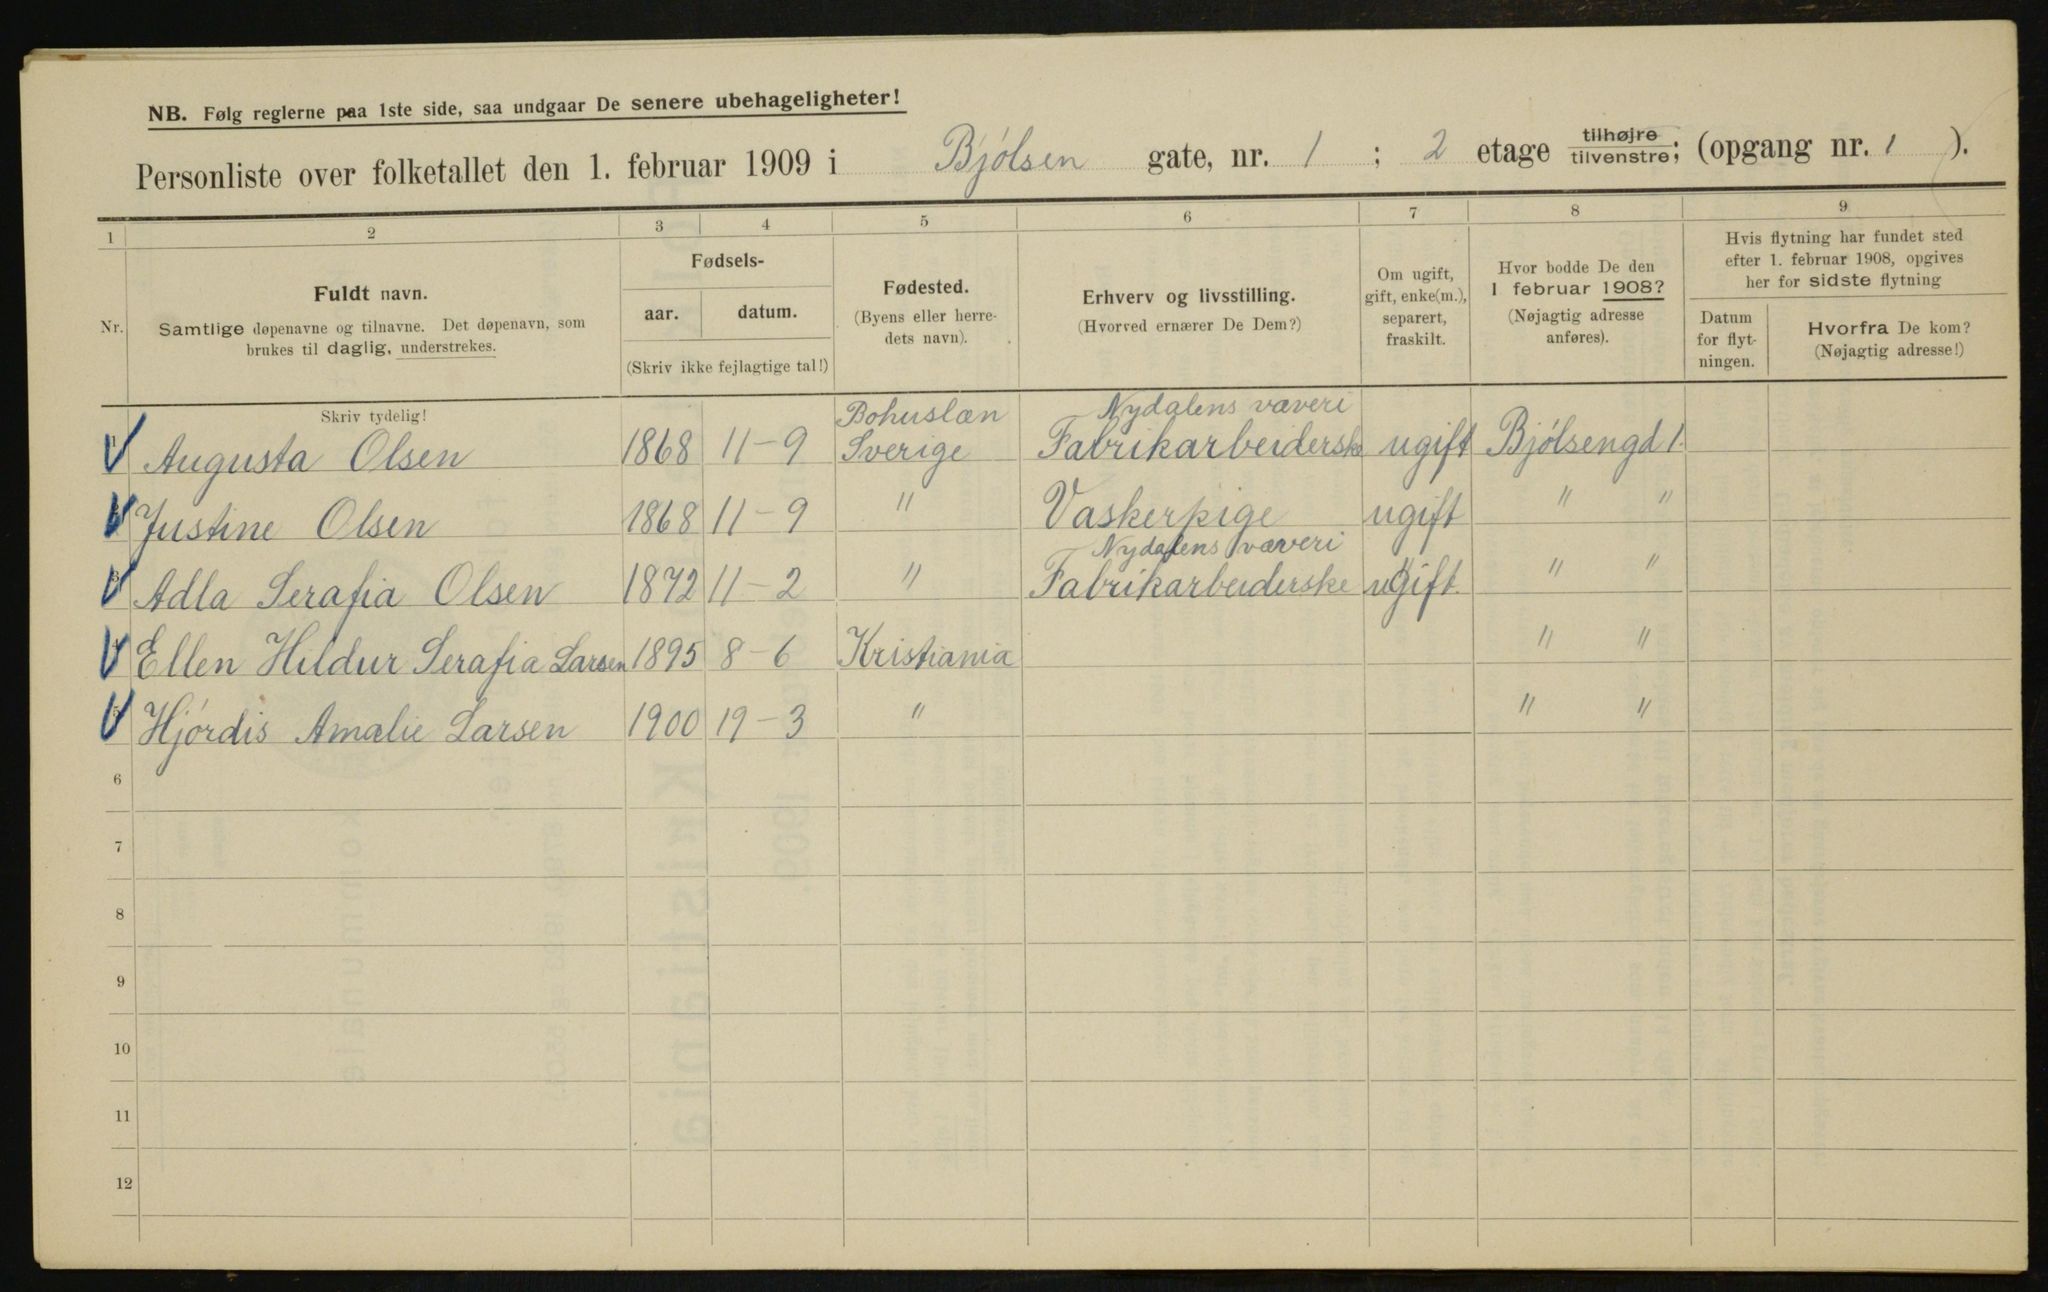 NB. Følg reglerne paa 1ste side, saa undgaar De senere ubehageligheter!
Personliste over folketallet den 1. februar 1909 i Bjölsen gate, nr. 1 ; 2 etage tilhøjre/tilvenstre; (opgang nr. 1 ).
1 2 3 4 5 6 7 8 9
Nr.
Fuldt navn.
Samtlige døpenavne og tilnavne. Det døpenavn, som
brukes til daglig, understrekes.
Fødsels-
aar. datum.
(Skriv ikke fejlagtige tal!)
Fødested.
(Byens eller herre-
dets navn).
Erhverv og livsstilling.
(Hvorved ernærer De Dem?)
Om ugift,
gift, enke(m.),
separert,
fraskilt.
Hvor bodde De den
1 februar 1908?
(Nøjagtig adresse
anføres).
Hvis flytning har fundet sted
efter 1. februar 1908, opgives
her for sidste flytning
Datum
for flyt-
ningen.
Hvorfra De kom?
(Nøjagtig adresse!)
Skriv tydelig!
Bohuslæn Nydalens væveri
1 Augusta Olsen 1868 11-9 Sverige Fabrikarbeiderske ugift Bjölsengd 1.
Justine Olsen 1868 11-9 " Vaskerpige ugift " "
Nydalens væveri
3 Adla Serafia Olsen 1872 11-2 " Fabrikarbeiderske ugift. " "
Ellen Hildur Serafia Larsen 1895 8-6 Kristiania " "
5 Hjórdis Amalie Larsen 1900 19-3 " " "
6
7
8
9
10
11
12